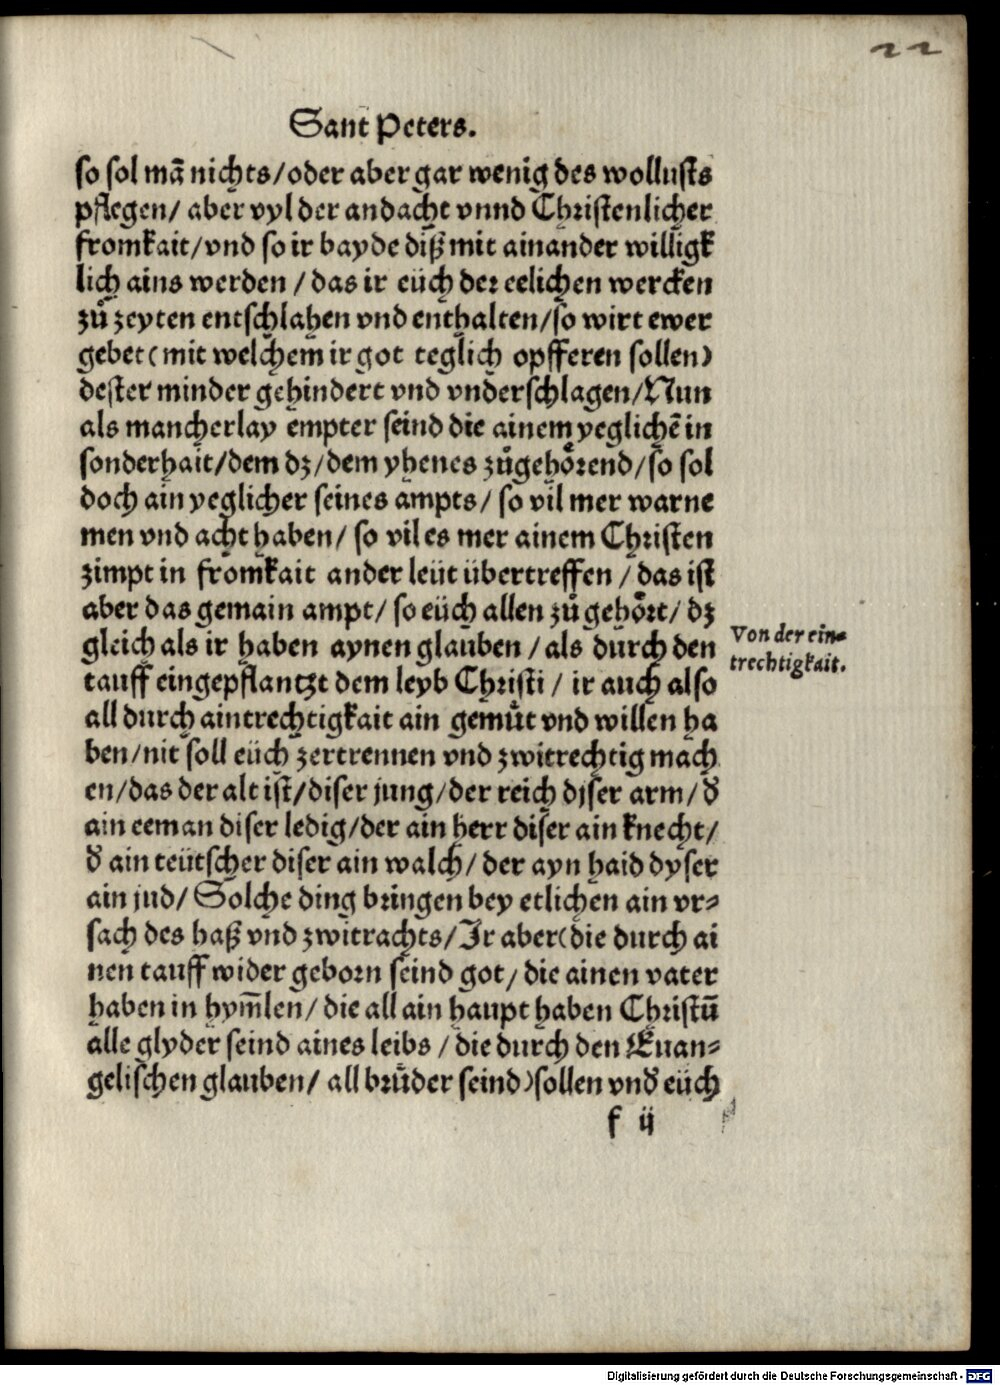 22
Sant Peters.
so sol mã nichts/oder aber gar wenig des wollusts
pflegen/ aber vyl der andacht vnnd Christenlicher
fromkait/vnd so ir bayde diß mit ainander willigk
lich ains werden /das ir eüch der eelichen wercken
zů zeyten entschlahen vnd enthalten/so wirt ewer
gebet(mit welchem ir got teglich opfferen sollen)
dester minder gehindert vnd vnderschlagen/Nun
als mancherlay empter seind die ainem yeglichẽ in
sonderhait/dem dz/dem yhenes zůgehörend/so sol
doch ain yeglicher seines ampts/ so vil mer warne
men vnd acht haben/ so vil es mer ainem Christen
zimpt in fromkait ander leüt übertreffen /das ist
aber das gemain ampt/ so eüch allen zů gehört/ dz
gleich als ir haben aynen glauben /als durch den
Von der ein=
trechtigkait.
tauff eingepflantzt dem leyb Christi / ir auch also
all durch aintrechtigkait ain gemůt vnd willen ha
ben/nit soll eüch zertrennen vnd zwitrechtig mach
en/das der alt ist/diser jung/der reich djser arm/ď
ain eeman diser ledig/der ain herr diser ain knecht/
ď ain teütscher diser ain walch/ der ayn haid dyser
ain jud/ Solche ding bringen bey etlichen ain vr=
sach des haß vnd zwitrachts/Ir aber(die durch ai
nen tauff wider geborn seind got/ die ainen vater
haben in hym̃len/ die all ain haupt haben Christũ
alle glyder seind aines leibs /die durch den Euan=
gelischen glauben/ all brůder seind)sollen vnď eüch
f ij
Digitalisierung gefördert durch die Deutsche Forschungsgemeinschaft - DFG